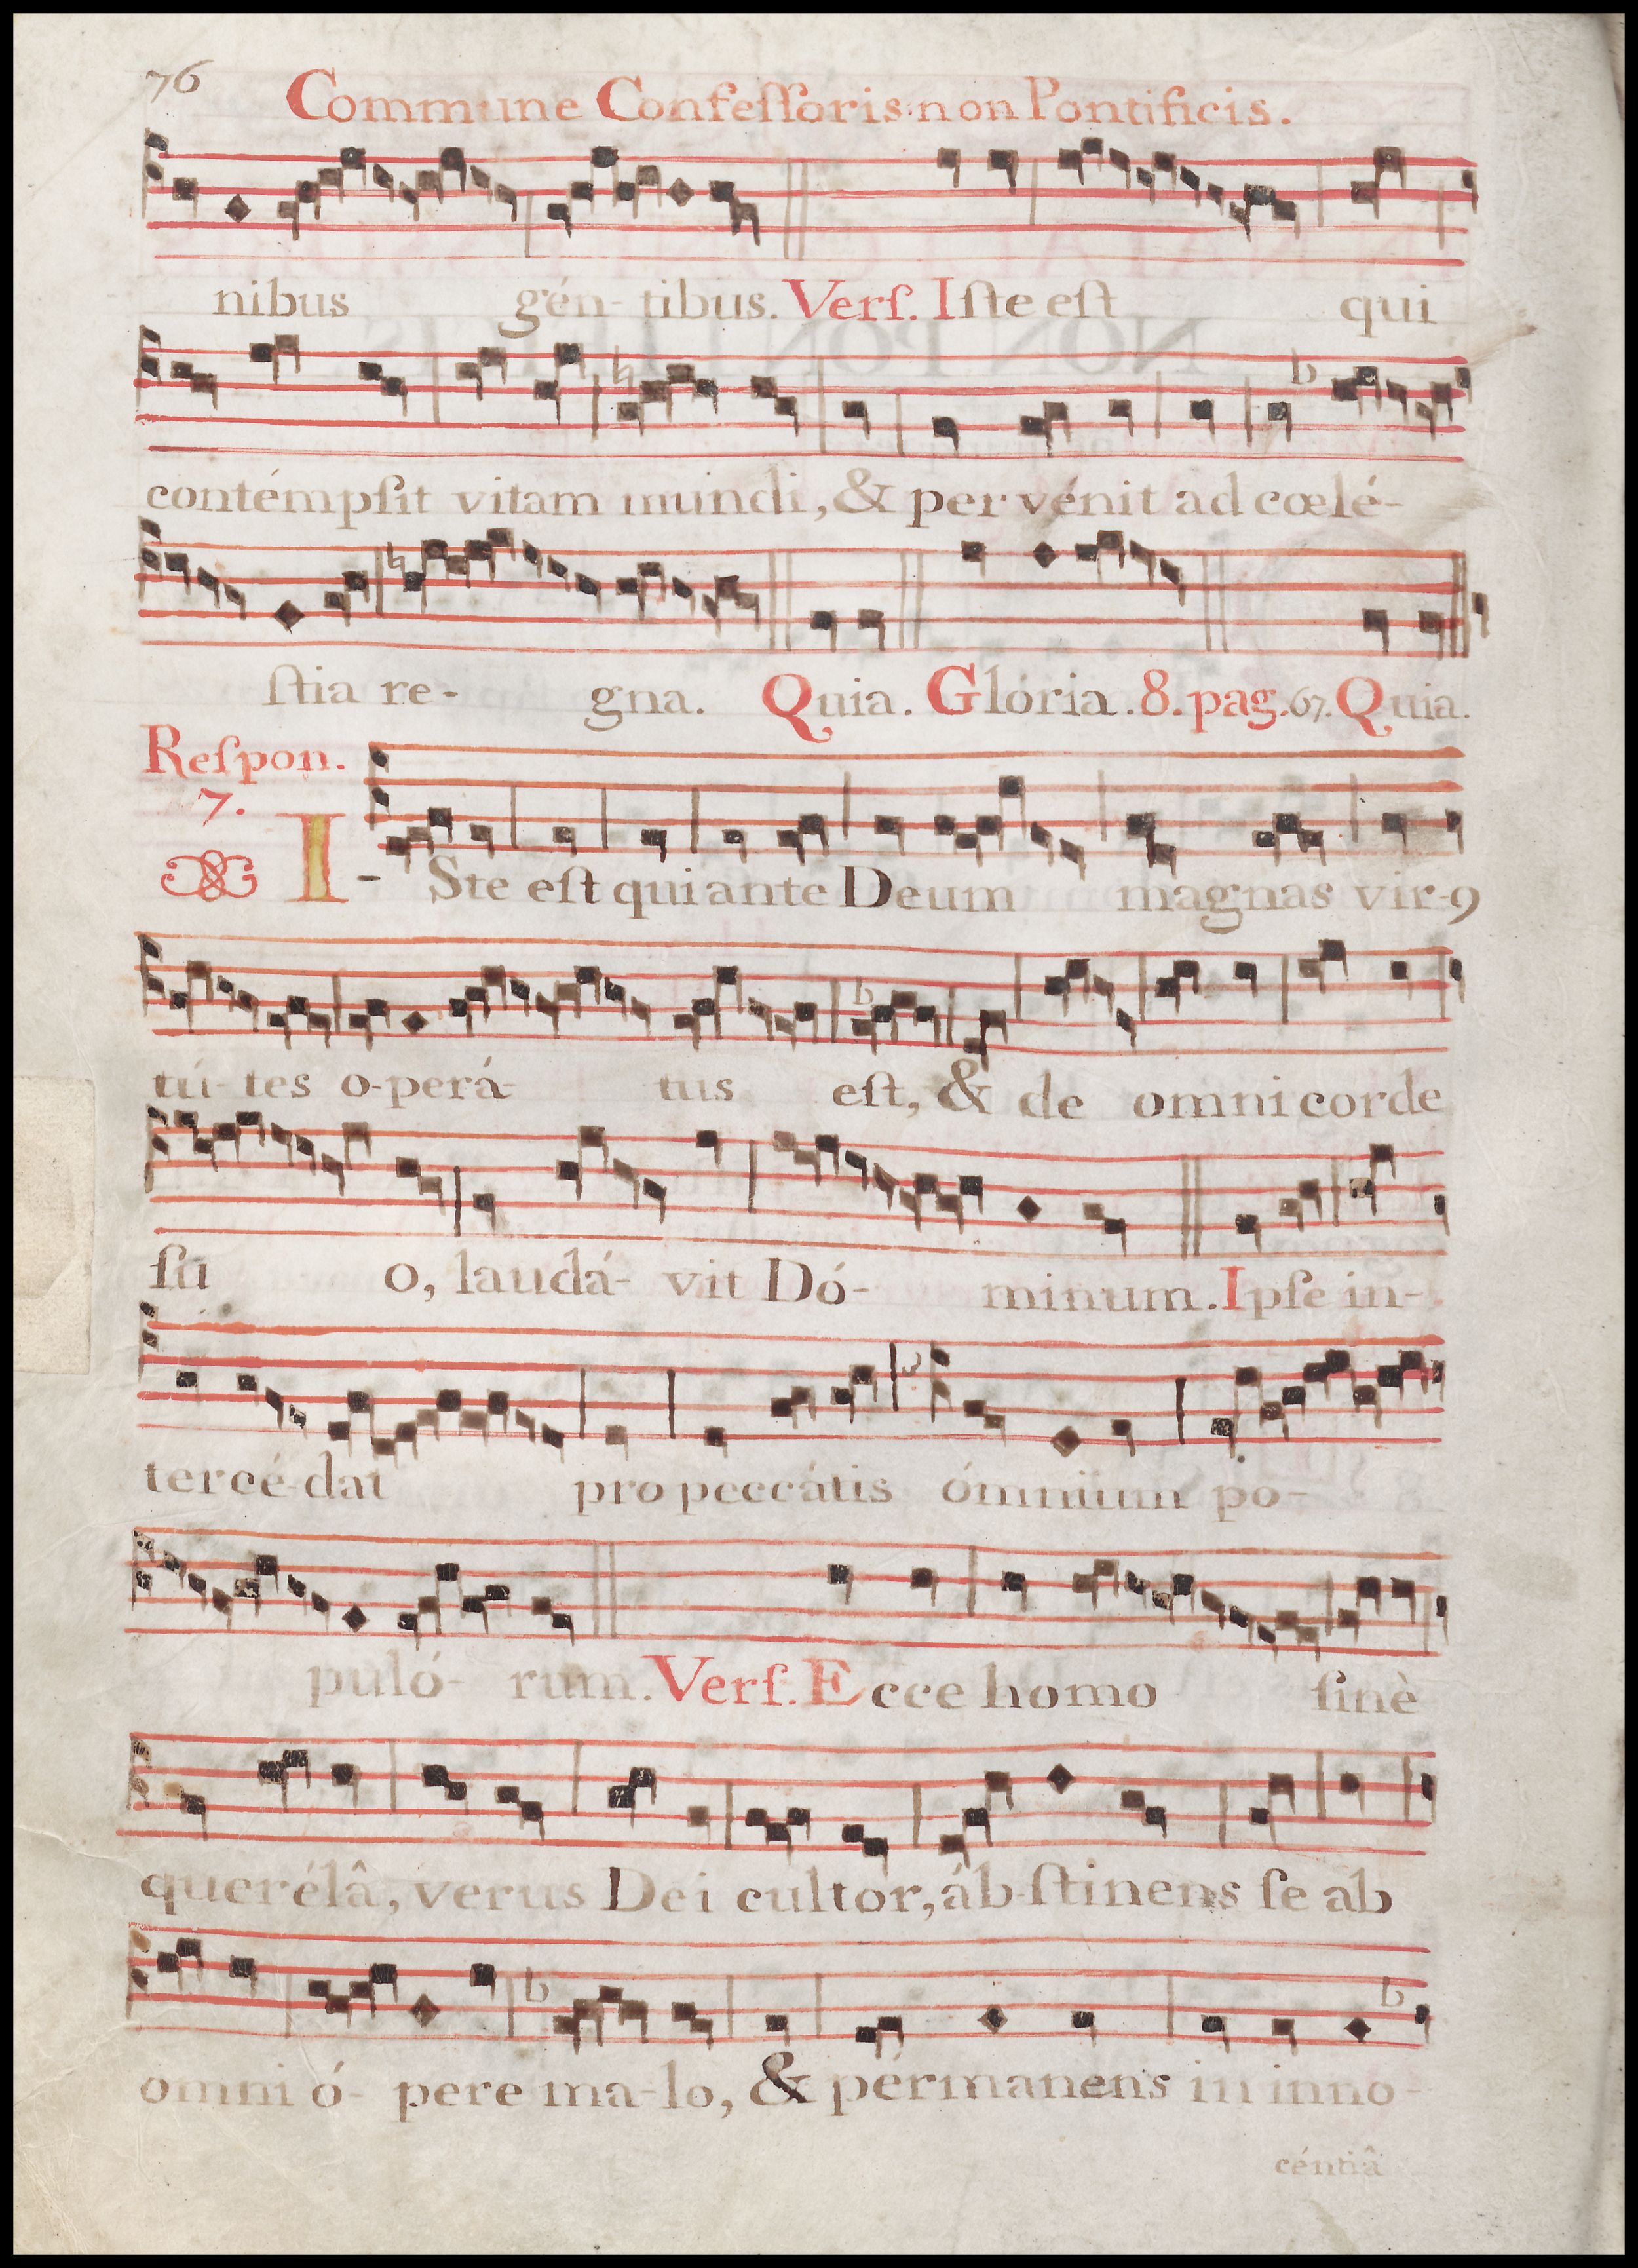 76
Commune Confeſſoris non Pontificis.
nibus gén- tibus. Verſ. Iſte eſt qui
contémpſit vitam mundi, & pervénit ad cœlé-
ſtia re- gna. Quia. Glória. 8. pag. 67. Quia.
Reſpon.
7.
I- Ste eſt qui ante Deum magnas vir-
tú- tes o-perá- tus eſt, & de omni corde
ſu o, laudá- vit Dó- minum. Ipſe in-
tercé-dat pro peccátis ómnium po-
puló- rum. Verſ. Ecce homo ſinè
querélâ, verus Dei cultor, áb-ſtinens ſe ab
omni ó- pere ma-lo, & pérmanens in inno-
céntiâ